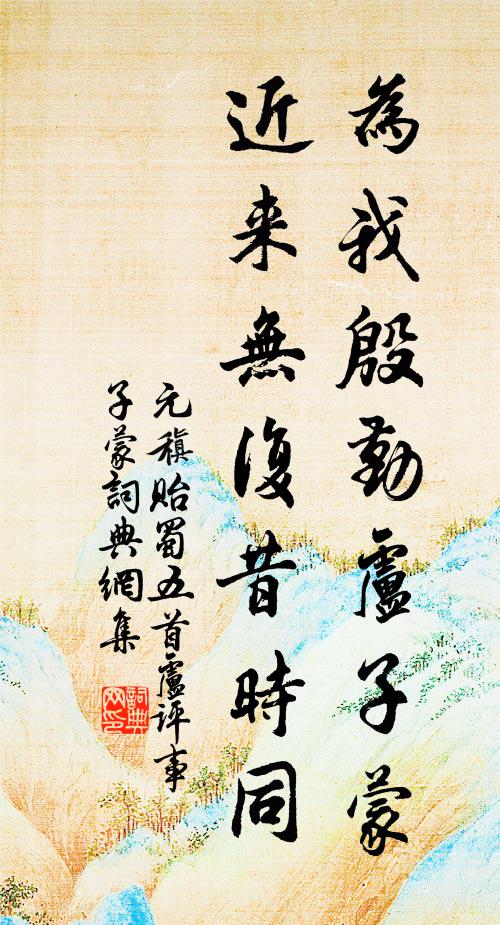 為我殷勤盧子蒙
近来無復昔時同
元稹貽蜀五首盧評事
子蒙詞典網集
詞典
网印